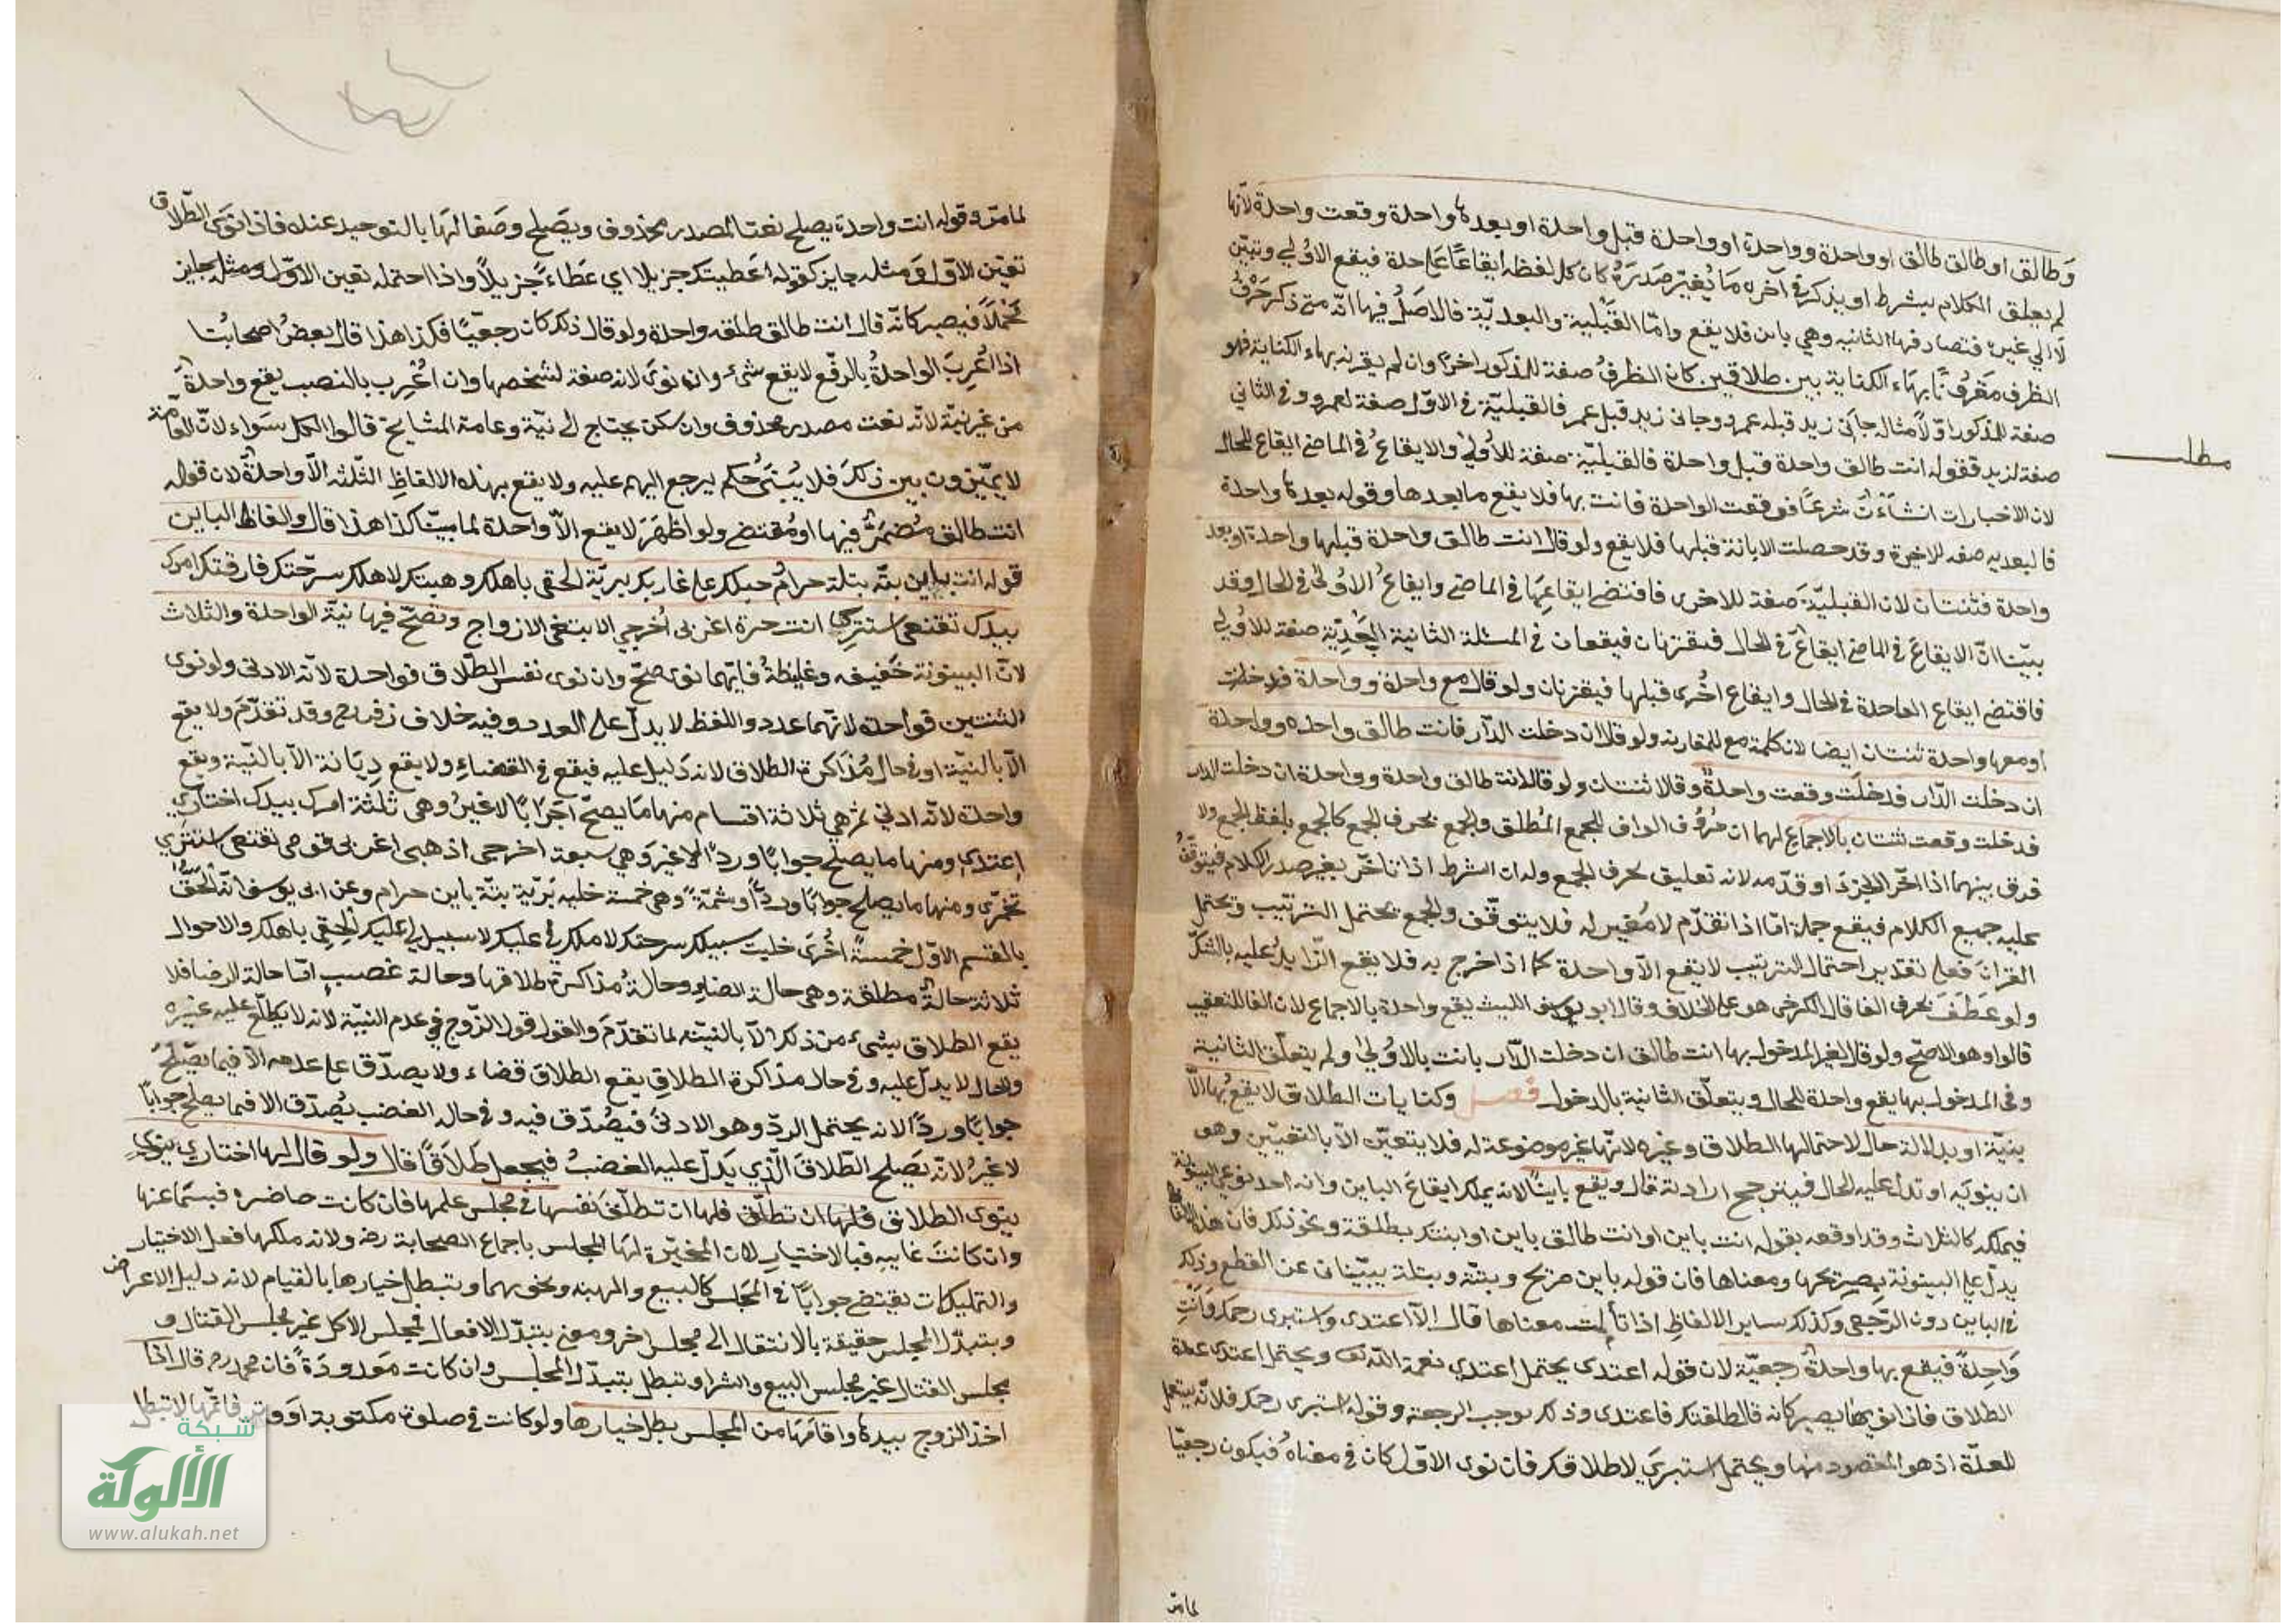 وطالق او طالق طالق او واحدة وواحدة او واحدة قبل واحدة او بعدها واحدة وقعت واحدة لانها
لم يعلق الكلام بشرط او يذكر في آخره ما يُغيّر صدره كان كل لفظه ايقاعًا على حدة فيقع الاولى وتبين
لا الى غيره فتصادفها الثانيه وهي باين فلا يقع وامّا القَبْلية والبعديّة فالاصلُ فيها انّه متى ذكر حرفُ
الظرف مقرونًا بهاء الكناية بين طلاقين كان الظرفُ صفة للمذكور اخرًا وان لم يقرنه بهاء الكناية فهو
صفة للمذكور اوّلاً مثاله جاني زيد قبله عمرو وجانى زيد قبل عمر فالقبليّة في الاوّل صفة لعمرو وفي الثاني
صفة لزيد فقوله انت طالق واحدة قبل واحدة فالقبليّة صفة للأولى والايقاعُ في الماضي ايقاع للحال
مطلب
لان الاخبارات انشاءَت شرعًا فوقعت الواحدة فبانت بها فلا يقع ما بعدها وقوله بعدها واحدة
فالبعديه صفه للاخيرة وقد حصلت الابانة قبلها فلا يقع ولو قال انت طالق واحدة قبلها واحدة او بعد
واحدة فثنتان لان القبليّة صفة للاخرى فاقتضى ايقاعها في الماضي وايقاعُ الاولى في الحال وقد
بيّنا انّ الايقاع في الماضي ايقاعٌ في الحال فيقترنان فيقعان في المسئلة الثانية البَعْديّة صفة للأولى
فاقتضى ايقاع الواحدة في الحال وايقاع اخرى قبلها فيقترنان ولو قال مع واحدة وواحدة فدخلت
او معها واحدة ثنتان ايضا لان كلمة مع للمقارنه ولو قال ان دخلت الدّار فانت طالق واحده وواحدة
ان دخلت الدّار فدخلت وقعت واحدةٌ وقالا ثنتان ولو قال انت طالق واحدة وواحدة ان دخلت الدار
فدخلت وقعت ثنتان بالاجماع لهما ان حُرُوف الواف للجمع المُطلق والجمع بحرف الجمع كالجمع بلفظ الجمع ولا
فرق بينهما اذا اخّر الجزا او قدّمه لانه تعليق بحرف الجمع وله ان الشرط اذا تاخّر يغير صدر الكلام فيتوقّفُ
عليه جميع الكلام فيقع جملة امّا اذا تقدّم لا مُغير له فلا يتوقّف والجمع يحتمل الترتيب ويحتمل
القران فعلى تقدير احتمال الترتيب لا يقع الاّ واحدة كما اذا خرج به فلا يقع الزّايدُ عليه بالشكّ
ولو عَطَفَ بحرف الفا قال الكرخى هو على الخلاف وقال ابو الليث يقع واحدة بالاجماع لان الفا للتعقيب
قالوا وهو الاصحّ ولو قال لغير المدخول بها انت طالق ان دخلت الدّار بانت بالأولى ولم يتعلّق الثانية
وفي المدخول بها يقع واحدة للحال ويتعلّق الثانية بالدخول فصل وكنايات الطلاق لا يقع بها الّا
بنيّة او بدلالة حال لاحتمالها الطلاق وغيره لانّها غير موضوعة له فلا يتعيّن الاّ بالتعيّين وهو
ان ينويه او تدلّ عليه الحال فيترجح ارادته قال ويقع باينًا لانه يملك ايقاعَ الباين وانه احد نوعي البينونة
فيملكه كالثلاث وقد اوقعه بقوله انت باين او انت طالق باين او ابنتك بطلقة ونحو ذلك فان هذه الالفاظ
يدلّ على البينونة بصريحها ومعناها فان قوله باين صريح وبتّة وبتلة يبّينان عن القطع وذلك
في الباين دون الرّجعى وكذلك ساير الالفاظ اذا تأملت معناها قال الاّ اعتدى واستبرى رحمك وانت
واحدة فيقع بها واحدةٌ رجعيّة لان قوله اعتدى يحتمل اعتدي نعمة الله تعالى ويحتمل اعتدى عدة
الطلاق فاذا نوى بها يصير كانه قال طلقتك فاعتدى وذلك يوجب الرجعة وقوله استبرى رحمك فلانّه يستعمل
للعدّة اذ هو المقصود منها ويحتمل استبرَي لاطلاقك فان نوى الاوّل كان في معناهُ فيكون رجعيّا
لما مرّ
لما مرّ وقوله انت واحدة يصلح نعتا لمصدر محذوف ويَصَلح وصَفا لهَا بالتوحيد عنده فاذا نَوَى الطّلاق
تعيّن الاوّل وَمثله جايز كقوله اعَطيتك جزيلا اي عَطاءً جَزيلاً واذا احتمله تعين الاوّل ومثله جايز
مُحْتملاً فيصير كانّه قال انت طالق طلقه واحدة ولو قال ذلك كان رجعيًّا فكذا هذا قال بعضُ اصحابنُا
اذا اعُربَ الواحدةُ بالرفّع لا يقع شىء وان نوَى لانه صفة لشخصها وان اعُرب بالنصب يقع واحدةٌ
من غير نيّة لانّه نعت مصدر محذوف وان سكن يحتاج الى نيّة وعامة المشايخ قالوا الكل سَواء لانّ العامّة
لا يميّزون بين ذلكَ فلا يُبْتنَى حُكم يرجع اليهم عليه ولا يقع بهذه الالفاظِ الثّلثه الاّ واحدةٌ لان قوله
انت طالق مُضمَرٌ فيها او مُقتضى ولو اظهَرَ لا يقع الاّ واحدة لما بيّنا كذا هذا قال والفاظ الباين
قوله انت باين بتّة بتلة حرامٌ حبلك على غاربك بريّة الحقى باهلك وهبتك لاهلك سرّحتك فارقتك امرك
بيدك تقنعى استترِي انت حرة اغربى اُخرجي ابتغى الازواج وتصحّ فيها نيّة الواحدة والثلاث
لانّ البينونة خَفيفه وغليظةُ فايّهما نوى صحّ وان نوى نفس الطّلاق فواحدة لانّه الادنى ولو نوى
الثنتين فواحدة لانّهما عدد واللفظ لا يدلّ على العدد وفيه خلاف زفر رح وقد تقدّم ولا يقع
الاّ بالنيّة او في حال مُذَاكرة الطلاق لانه دَليل عليه فيقع في القضاءِ ولا يقع دِيَانة الاّ بالنّيّة ويقع
واحدة لانّه ادنى ثم هي ثلاثة اقسام منها مَا يصحّ جَوَابًا لا غيرُ وهى ثلثة امرك بيدك اختارِي
اعتدِي ومنها ما يصلح جوابًا وردًا لا غيرَ وهي سبعة اخرجى اذهبى اغربى قومى تقنعى استترى
تخمّرى ومنها ما يصلح جوابًا وردًّا وشتمًة وهى خمسة خليه بَريّة بتّة باين حرام وعن ابى يوسف انّه الحَقَ
بالقسم الاوّل خمسةً اخُرَى خليت سبيلك سرحتك لا ملك لي عليك لا سبيل لي عليك الحقِي باهلك والاحوال
ثلاثة حالةٌ مطلقة وهى حالة الرضاء وحالةُ مذاكرة طلاقها وحالة غضبٍ امّا حالة الرضا فلا
يقع الطلاق بشىء من ذلك الاّ بالنيّة لما تقدّم والقول قول الزّوج في عدم النيّة لانه لا يطّلع عليه غيره
والحال لا يدلّ عليه وفي حال مذاكرة الطلاقِ يقع الطلاق قضاء ولا يصدّق على عدمه الا فيما يَصْلحُ
جوابًا وردًا لانه يحتمل الردّ وهو الادنى فيصُدّق فيه وفي حاله الغضب يُصدّق الا فيما يصلح جوابًا
لا غيرُ لانّه يَصلح الطّلاقَ الّذي يَدلّ عليه الغضبُ فيجعل طلاَقًا قال ولو قال لها اختارِي ينوي
ينوى الطلاق فلها ان تطلق فلها ان تطلّق نفسها في مجلس علمها فان كانت حاضره فبسَماعها
وان كانتَ غايبه فبالاختيارِ لان المخيّرة لهَا المجلس باجماع الصحابة رضه ولانه ملكها فعل الاختيار
والتمليكات يقتضى جوابًا في المجَلس كالبيع والهبه ونحوهما ويبطل خيارها بالقيام لانه دليل الاعراض
ويتبدّل المجلس حقيقة بالانتقال الى مجلس اخر ومعنى بتبدّل الافعال فمجلس الاكل غير مجلس القتال و
مجلس القتال غير مجلس البيع والشرا وتبطل بتبدّل المجلس وان كانت مَعدودَةً فان محمد رح قال اذا
اخذ الزوج بيدها واقامَها من المجلس بطل خيارها ولو كانت في صلوة مكتوبة او وتر فاتمّها لا تبطل
شبكة
الألوكة
www.alukah.net